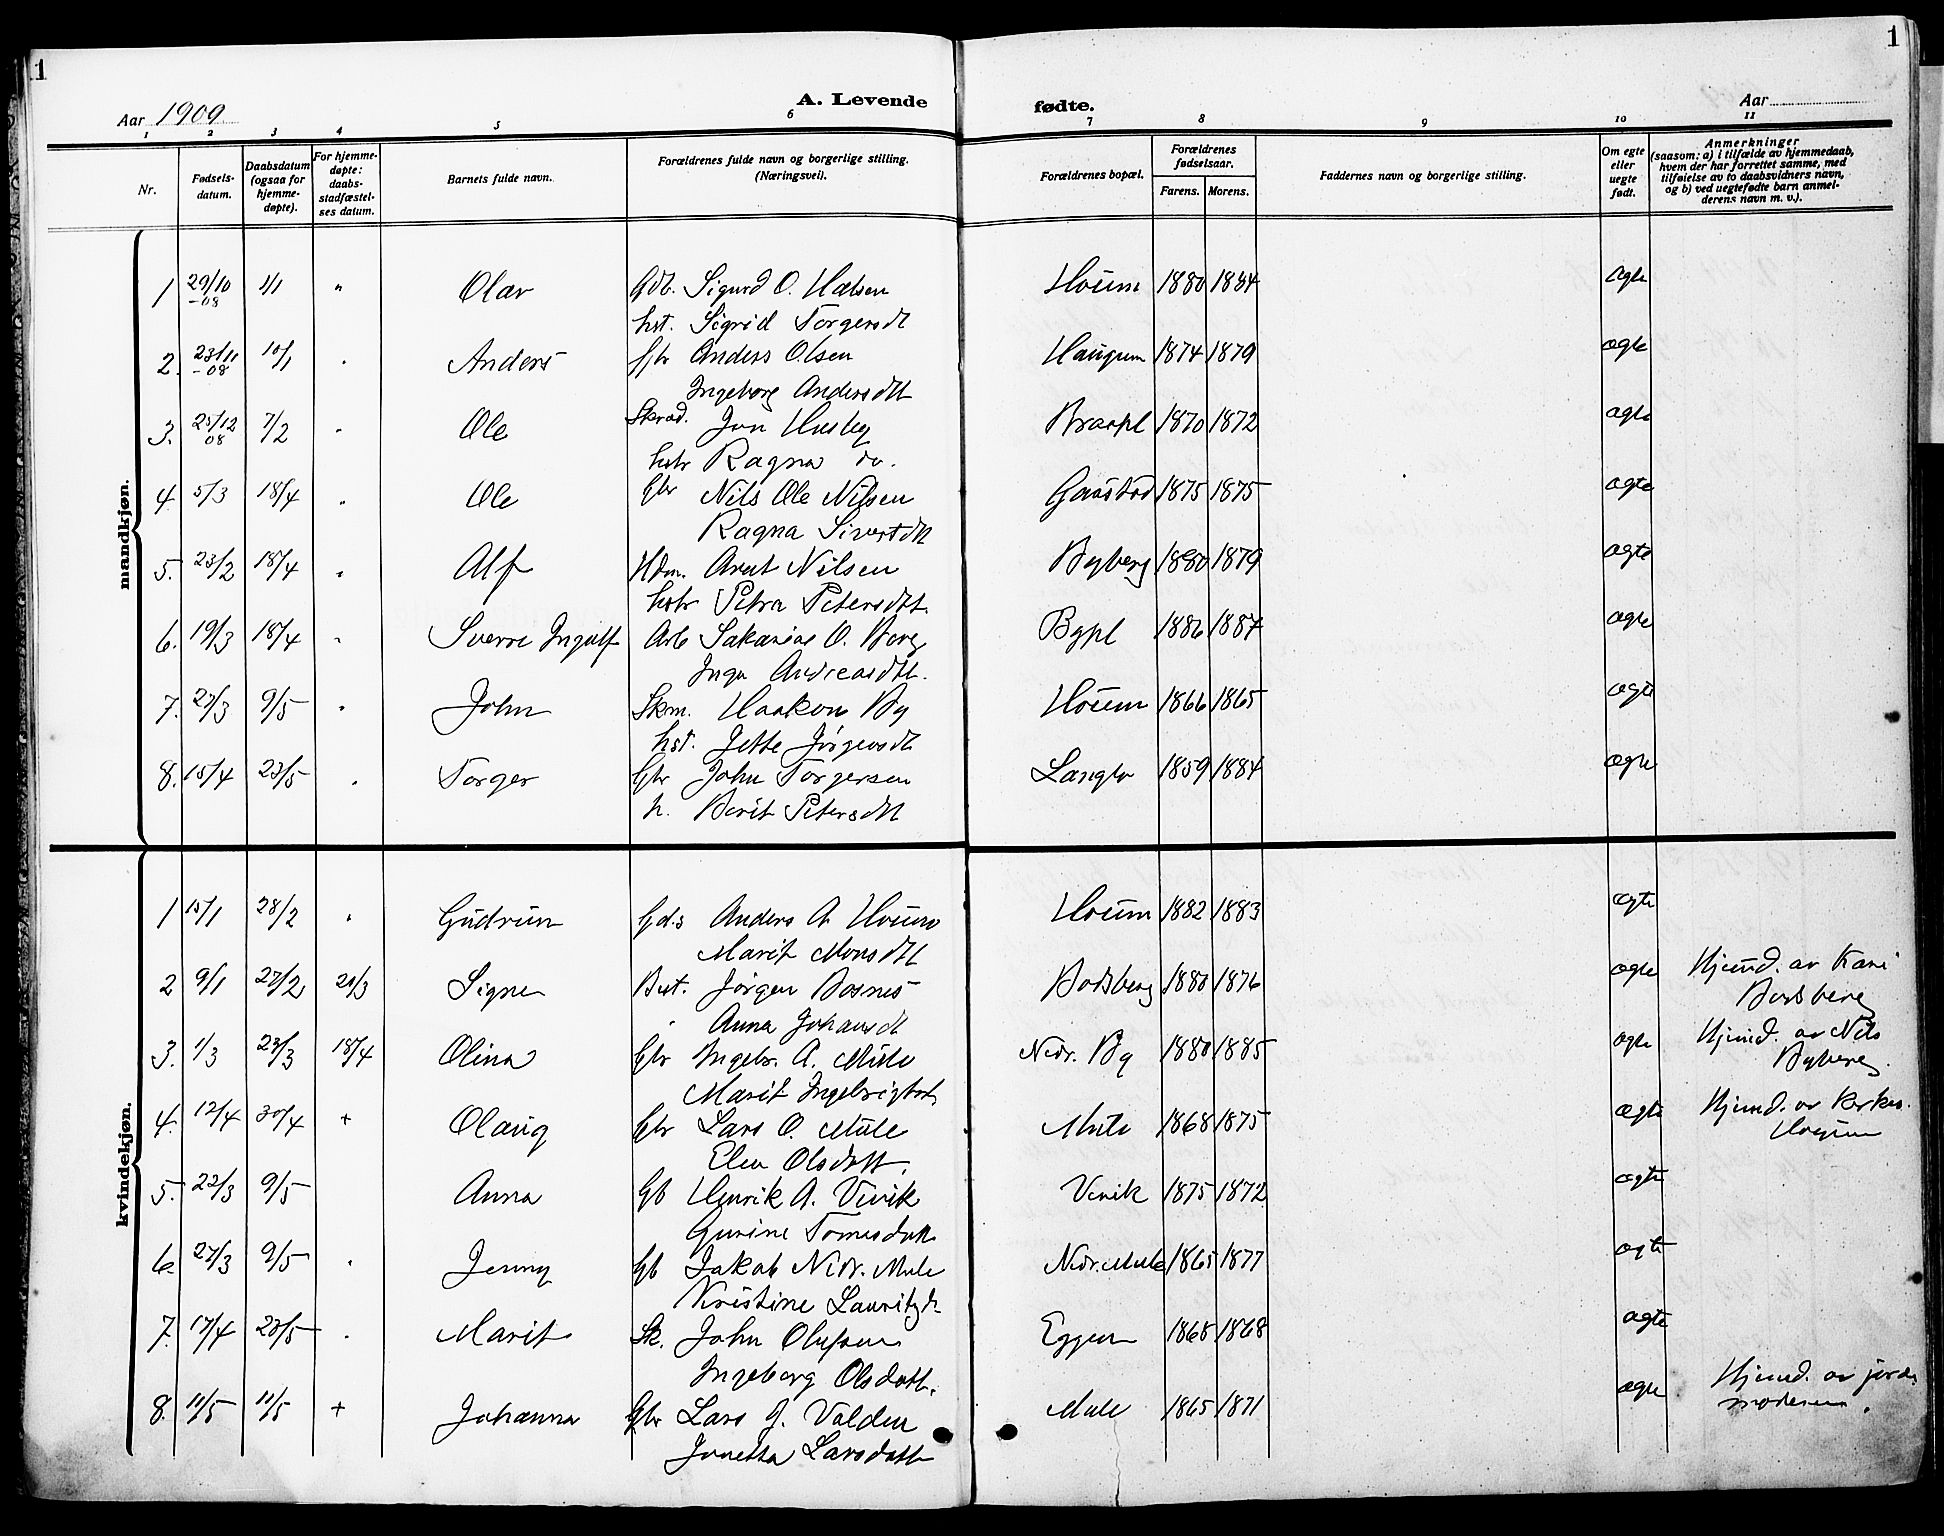 1
1
Aar 1909
A. Levende
fødte.
Aar
1 2 3 4 5 6 7 8 9 10 11
Nr.
Fødsels-
datum.
Daabsdatum
(ogsaa for
hjemme-
døpte).
For hjemme-
døpte:
daabs-
stadfæstel-
ses datum.
Barnets fulde navn.
Forældrenes fulde navn og borgerlige stilling.
(Næringsvei).
Forældrenes bopæl.
Forældrenes
fødselsaar.
Farens. Morens.
Faddernes navn og borgerlige stilling.
Om egte
eller
uegte
født.
Anmerkninger
(saasom: a) i tilfælde av hjemmedaab,
hvem der har forrettet samme, med
tilføielse av to daabsvidners navn,
og b) ved uegtefødte barn anmel-
derens navn m. v.).
mandkjøn.
1 29/10 -08 1/1 " Olav Gdb. Sigurd O. Halsen Hoëm 1880 1884 ægte
hst. Sigrid Torgersdt
2. 23/11 -08 10/1 " Anders Gbr Anders Olsen Haugum 1874 1879 ægte
Ingeborg Andersdtt
3. 25/12 08 7/2 " Ole Skræd. Jon Husby 1870 1872 ægte
hstr Ragna do.
4. 5/3 18/4 " Ole Gbr Nils Ole Nilsen Gaustad 1875 1875 ægte
Ragna Sivertdtt
5. 23/2 18/4 " Alf Hdm. Arnt Nilsen Byberg 1880 1879 ægte
hstr Petra Petersdtt.
6. 19/3 18/4 " Sverre Ingolf Arb Sakarias O. Berg Bypl 1886 1887 ægte
Inga Andreasdtt.
7. 27/3 9/5 " John Skm. Haakon By Hoëm 1866 1865 ægte
hst. Jette Jörgensdt
8. 15/4 23/5 " Torger Gbr John Torgersen 1859 1884 ægte
h. Berit Petersdtt
kvindekjøn.
1 15/1 28/2 " Gudrun Gds Anders A. Hoëm Hoëm 1882 1883 ægte
Marit Monsdtt
2 9/1 27/2 21/3 Signe Best. Jörgen Bosnes Bodsberg 1880 1876 ægte Hjemd. av Kari
Anna Johansdt Bodsberg
3. 1/3 23/3 18/4 Olina Gbr Ingebr. A. Mule Nedr. By 1880 1885 ægte Hjemd. av Nils
Marit Ingebrigtsdt Byberg.
4. 12/4 30/4 + Olaug Gbr Lars O. Mule Mule 1868 1875 ægte Hjemd. av Kirkes.
Elen Olsdatt. Hoëm
5. 22/3 9/5 Anna Gb Henrik A. Vivik Vivik 1875 1872 ægte
Gurine Tomesdatt
6. 27/3 9/5 " Jenny Gb Jakob Nedr. Mule Nedr. Mule 1865 1877 ægte
Kristine Lauritzdt
7. 17/4 23/5 " Marit Sk. John Olufsen Eggen 1868 1868 ægte
Ingeborg Olsdatt.
8. 11/5 11/5 + Johanna Gbr Lars J. Valden Mule 1865 1871 ægte Hjemd. av jorde
Jonetta Larsdatt moderen.